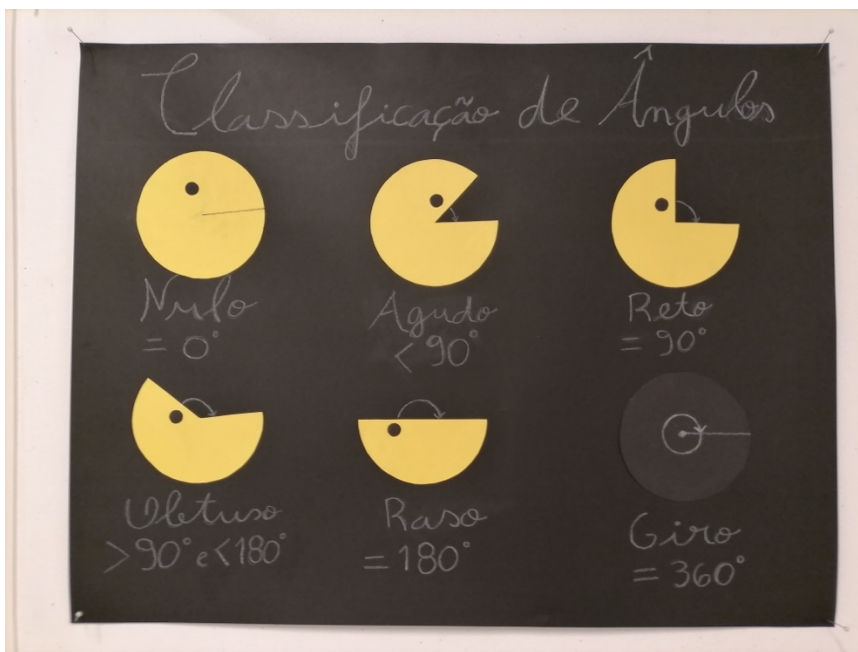 Classificação de Ângulos
Nulo
= 0°
Agudo
< 90°
Reto
= 90°
Obtuso
>90° e <180°
Raso
= 180°
Giro
= 360°